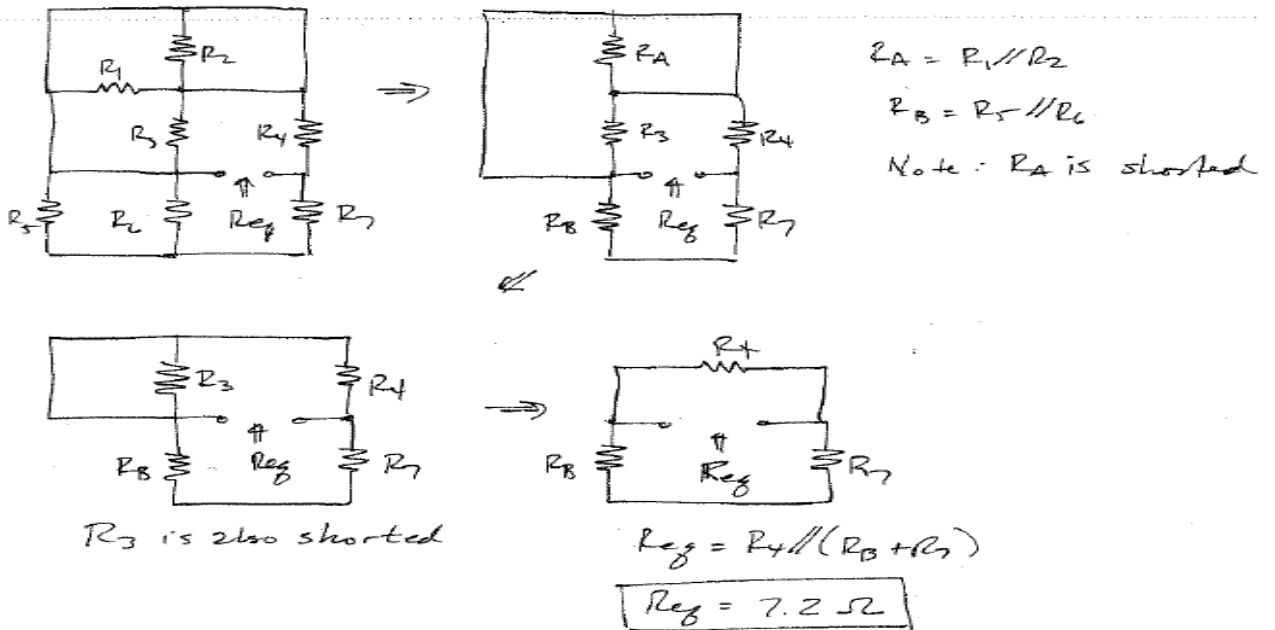 R2
R1
R3
R4
R5
R6
Req
R7
⇒
RA
R3
R4
RB
Req
R7
RA = R1//R2
RB = R5//R6
Note: RA is shorted
R3
R4
RB
Req
R7
R3 is also shorted
⇒
R4
RB
Req
R7
Req = R4//(RB+R7)
Req = 7.2 Ω